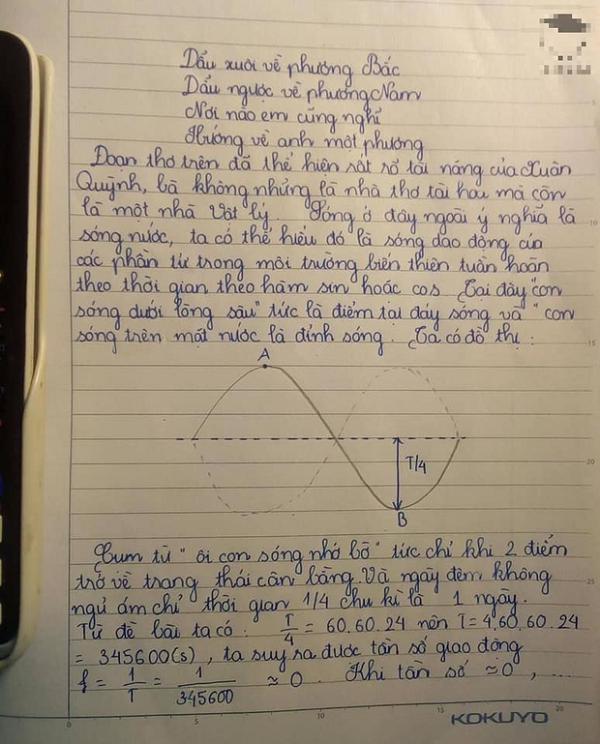 Dẩu xuôi về phương Bắc
Dẩu ngược về phương Nam
Nơi nào em cũng nghĩ
Hướng về anh một phương
Đoạn thơ trên đã thể hiện sát rổ tài năng của Xuân
Quỳnh, bà không những là nhà thơ tài hoa mà còn
là một nhà Vật lý. Sóng ở đây ngoài ý nghĩa là
sóng nước, ta có thể hiểu đó là sóng dao động của
các phần tử trong môi trường biến thiên tuần hoàn
theo thời gian theo hàm sin hoặc cos. Tại đây "con
sóng dưới lòng sâu" tức là điểm tại đáy sóng và "con
sóng trên mặt nước là đỉnh sóng. Ta có đồ thị:
A
T/4
B
Cụm từ "ôi con sóng nhớ bờ" tức chỉ khi 2 điểm
trở về trạng thái cân bằng. Và ngày đêm không
ngủ ám chỉ thời gian 1/4 chu kì là 1 ngày.
Từ đề bài ta có. T/4 = 60.60.24 nên T = 4.60.60.24
= 345600(s), ta suy ra được tần số giao động
f = 1/T = 1/345600 ≈ 0. Khi tần số ≈ 0, ...
0 5 10 15 20
KOKUYO